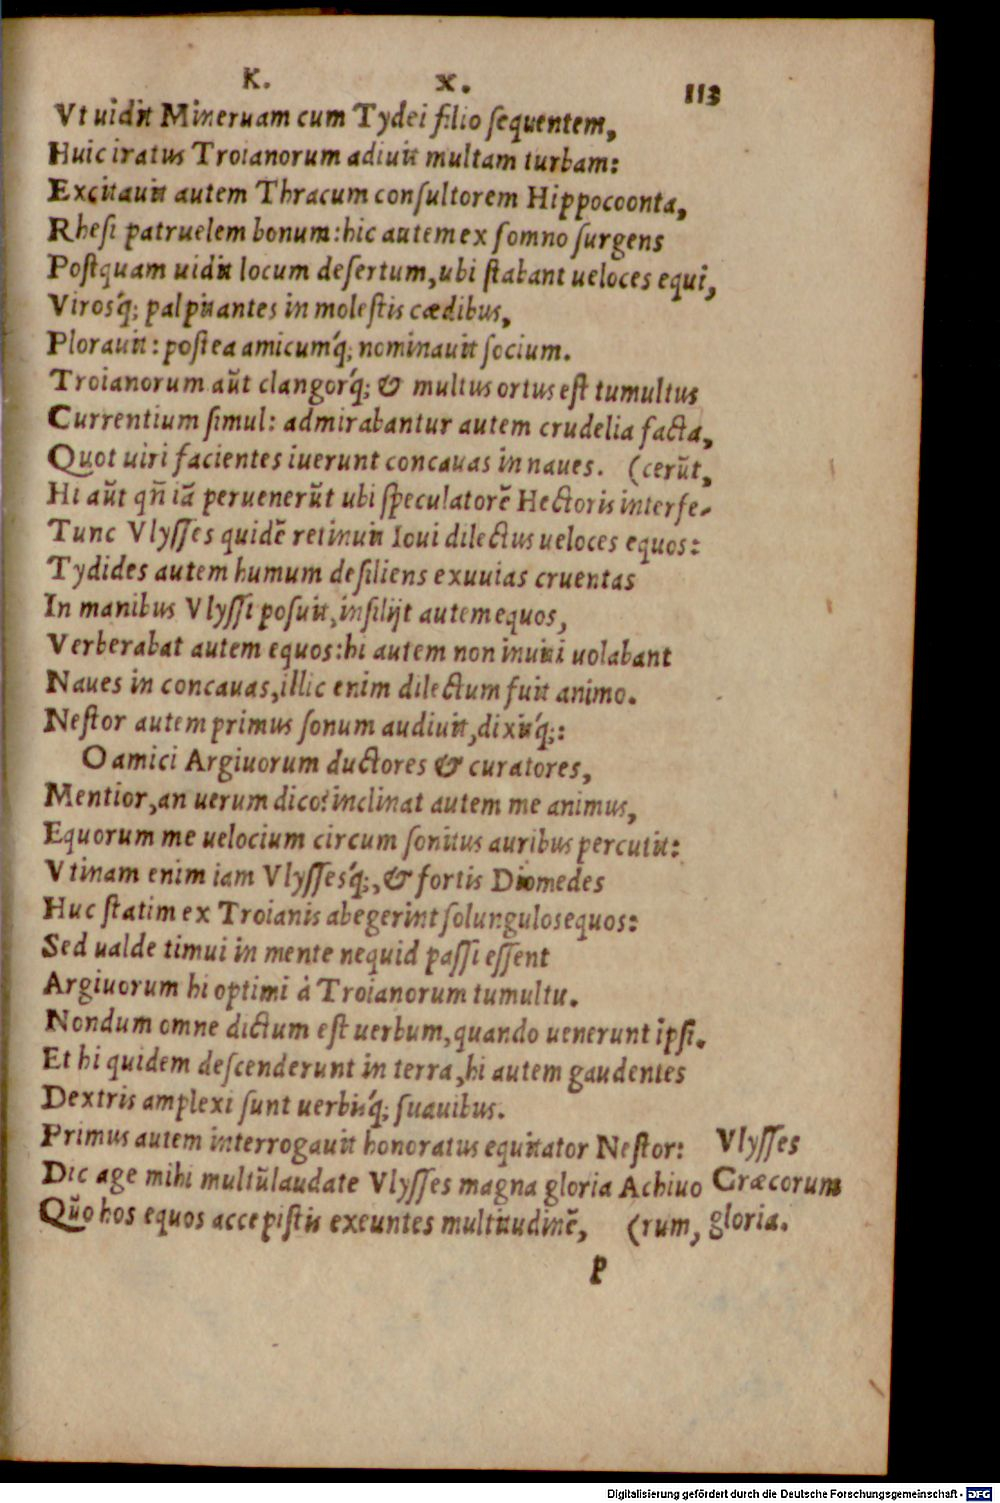 K. X. 113
Vt uidit Mineruam cum Tydei filio sequentem,
Huic iratus Troianorum adiuit multam turbam:
Excitauit autem Thracum consultorem Hippocoonta,
Rhesi patruelem bonum: hic autem ex somno surgens
Postquam uidit locum desertum, ubi stabant ueloces equi,
Virosq́; palpitantes in molestis cædibus,
Plorauit: postea amicumq́; nominauit socium.
Troianorum aũt clangorq́; & multus ortus est tumultus
Currentium simul: admirabantur autem crudelia facta,
Quot uiri facientes iuerunt concauas in naues. (cerũt,
Hi aũt qñ iã peruenerũt ubi speculatorẽ Hectoris interfe-
Tunc Vlysses quidẽ retinuit Ioui dilectus ueloces equos:
Tydides autem humum desiliens exuuias cruentas
In manibus Vlyssi posuit, insilijt autem equos,
Verberabat autem equos: hi autem non inuiti uolabant
Naues in concauas, illic enim dilectum fuit animo.
Nestor autem primus sonum audiuit, dixitq́;:
O amici Argiuorum ductores & curatores,
Mentior, an uerum dico? inclinat autem me animus,
Equorum me uelocium circum sonitus auribus percutit:
Vtinam enim iam Vlyssesq́;, & fortis Diomedes
Huc statim ex Troianis abegerint solungulos equos:
Sed ualde timui in mente nequid passi essent
Argiuorum hi optimi à Troianorum tumultu.
Nondum omne dictum est uerbum, quando uenerunt ipsi.
Et hi quidem descenderunt in terra, hi autem gaudentes
Dextris amplexi sunt uerbisq́; suauibus.
Primus autem interrogauit honoratus equitator Nestor: Vlysses
Dic age mihi multũ laudate Vlysses magna gloria Achiuo Græcorum
Quõ hos equos accepistis exeuntes multitudinẽ, (rum, gloria.
P
Digitalisierung gefördert durch die Deutsche Forschungsgemeinschaft - DFG